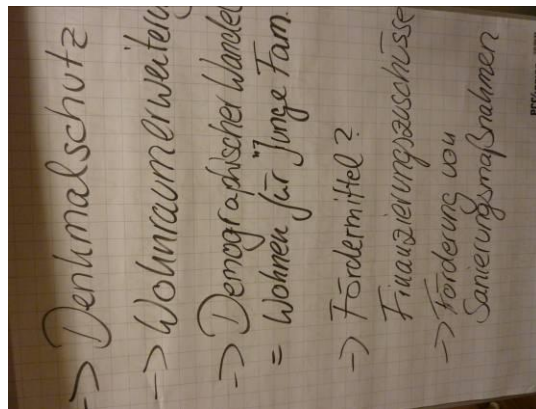 -> Denkmalschutz
-> Wohnraumerweiterung
-> Demographischer Wandel
= Wohnen für junge Fam.
-> Fördermittel?
Finanzierungszuschüsse
-> Förderung von
Sanierungsmaßnahmen